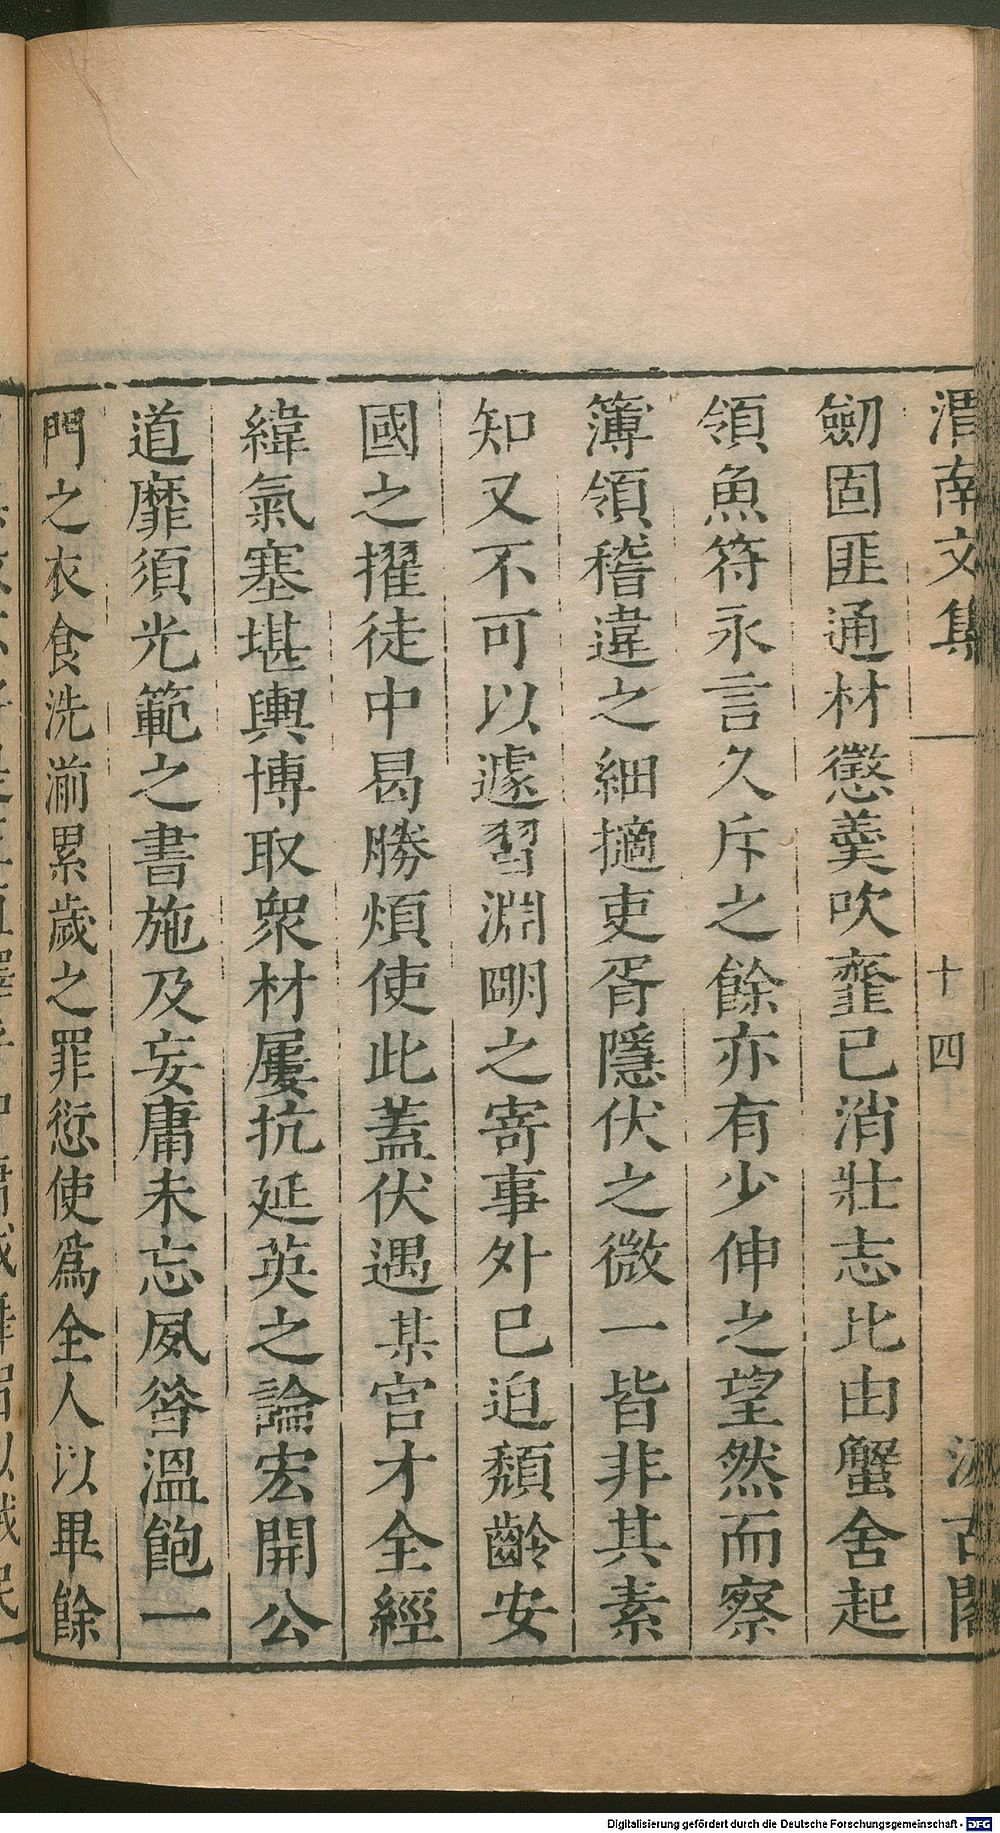 渭南文集 十四 汲古閣
劒固匪通材懲羹吹虀已消壯志比由蟹舍起
領魚符永言久斥之餘亦有少伸之望然而察
簿領稽違之細擿吏胥隱伏之微一皆非其素
知又不可以遽習淵明之寄事外已迫頹齡安
國之擢徒中曷勝煩使此蓋伏遇某官才全經
緯氣塞堪輿博取衆材屢抗延英之論宏開公
道靡須光範之書施及妄庸未忘夙眷溫飽一
門之衣食洗湔累歲之罪愆使爲全人以畢餘
Digitalisierung gefördert durch die Deutsche Forschungsgemeinschaft - DFG